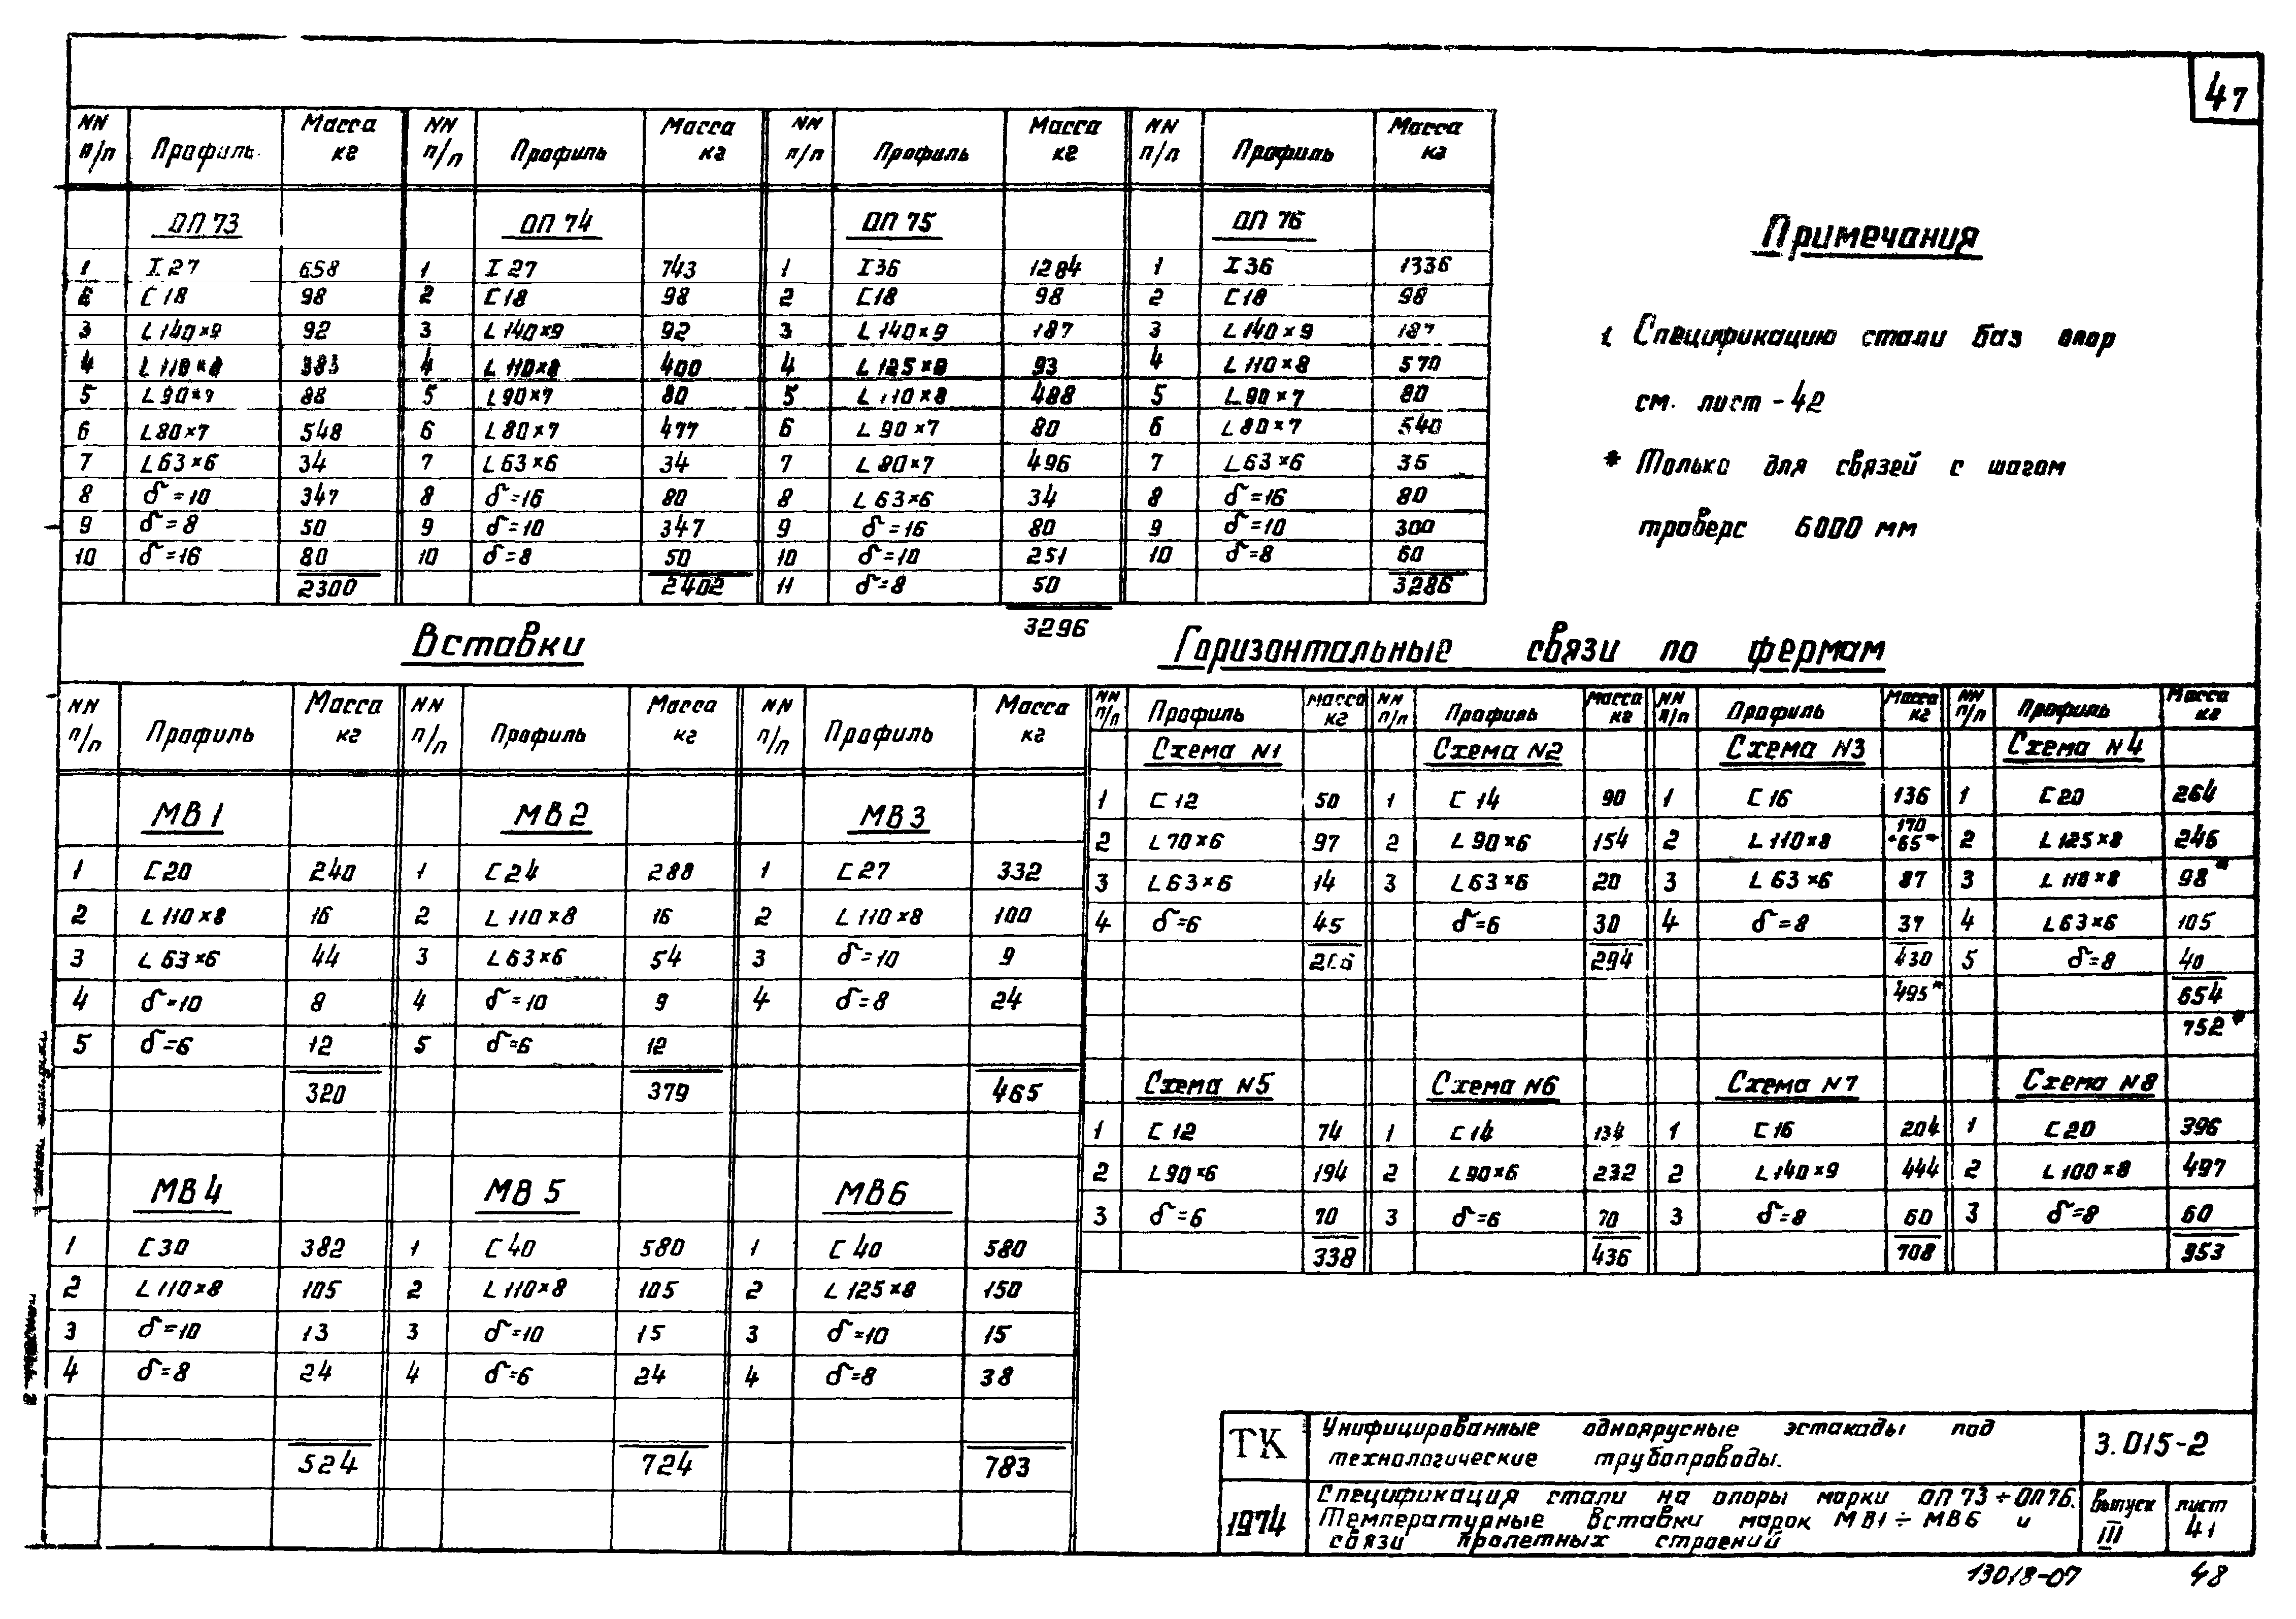 47
NN п/п Профиль Масса кг NN п/п Профиль Масса кг NN п/п Профиль Масса кг NN п/п Профиль Масса кг
ОП 73 ОП 74 ОП 75 ОП 76
1 I 27 658 1 I 27 743 1 I 36 1284 1 I 36 1336
2 С 18 98 2 С 18 98 2 С 18 98 2 С 18 98
3 L 140×9 92 3 L 140×9 92 3 L 140×9 187 3 L 140×9 187
4 L 110×8 383 4 L 110×8 400 4 L 125×8 93 4 L 110×8 570
5 L 90×7 88 5 L 90×7 80 5 L 110×8 488 5 L 90×7 80
6 L 80×7 548 6 L 80×7 477 6 L 90×7 80 6 L 80×7 540
7 L 63×6 34 7 L 63×6 34 7 L 80×7 496 7 L 63×6 35
8 δ=10 347 8 δ=16 80 8 L 63×6 34 8 δ=16 80
9 δ=8 50 9 δ=10 347 9 δ=16 80 9 δ=10 300
10 δ=16 80 10 δ=8 50 10 δ=10 251 10 δ=8 60
2300 2402 11 δ=8 50 3286
3296
Примечания
1 Спецификацию стали баз опор
см. лист-42
* Только для связей с шагом
траверс 6000 мм
Вставки
NN п/п Профиль Масса кг NN п/п Профиль Масса кг NN п/п Профиль Масса кг
МВ1 МВ2 МВ3
1 С 20 240 1 С 24 288 1 С 27 332
2 L 110×8 16 2 L 110×8 16 2 L 110×8 100
3 L 63×6 44 3 L 63×6 54 3 δ=10 9
4 δ=10 8 4 δ=10 9 4 δ=8 24
5 δ=6 12 5 δ=6 12
320 379 465
МВ4 МВ5 МВ6
1 С 30 382 1 С 40 580 1 С 40 580
2 L 110×8 105 2 L 110×8 105 2 L 125×8 150
3 δ=10 13 3 δ=10 15 3 δ=10 15
4 δ=8 24 4 δ=6 24 4 δ=8 38
524 724 783
Горизонтальные связи по фермам
NN п/п Профиль Масса кг NN п/п Профиль Масса кг NN п/п Профиль Масса кг NN п/п Профиль Масса кг
Схема N1 Схема N2 Схема N3 Схема N4
1 С 12 50 1 С 14 90 1 С 16 136 1 С 20 264
2 L 70×6 97 2 L 90×6 154 2 L 110×8 170 +65* 2 L 125×8 246
3 L 63×6 14 3 L 63×6 20 3 L 63×6 87 3 L 110×8 98*
4 δ=6 45 δ=6 30 4 δ=8 37 4 L 63×6 105
206 294 430 5 δ=8 40
495* 654
752*
Схема N5 Схема N6 Схема N7 Схема N8
1 С 12 74 1 С 14 134 1 С 16 204 1 С 20 396
2 L 90×6 194 2 L 90×6 232 2 L 140×9 444 2 L 100×8 497
3 δ=6 70 3 δ=6 70 3 δ=8 60 3 δ=8 60
338 436 708 953
ТК
1974
Унифицированные одноярусные эстакады под
технологические трубопроводы.
3.015-2
Спецификация стали на опоры марки ОП 73÷ОП76.
Температурные вставки марок МВ1÷МВ6 и
связи пролетных строений
Выпуск III
лист 41
13018-07 48